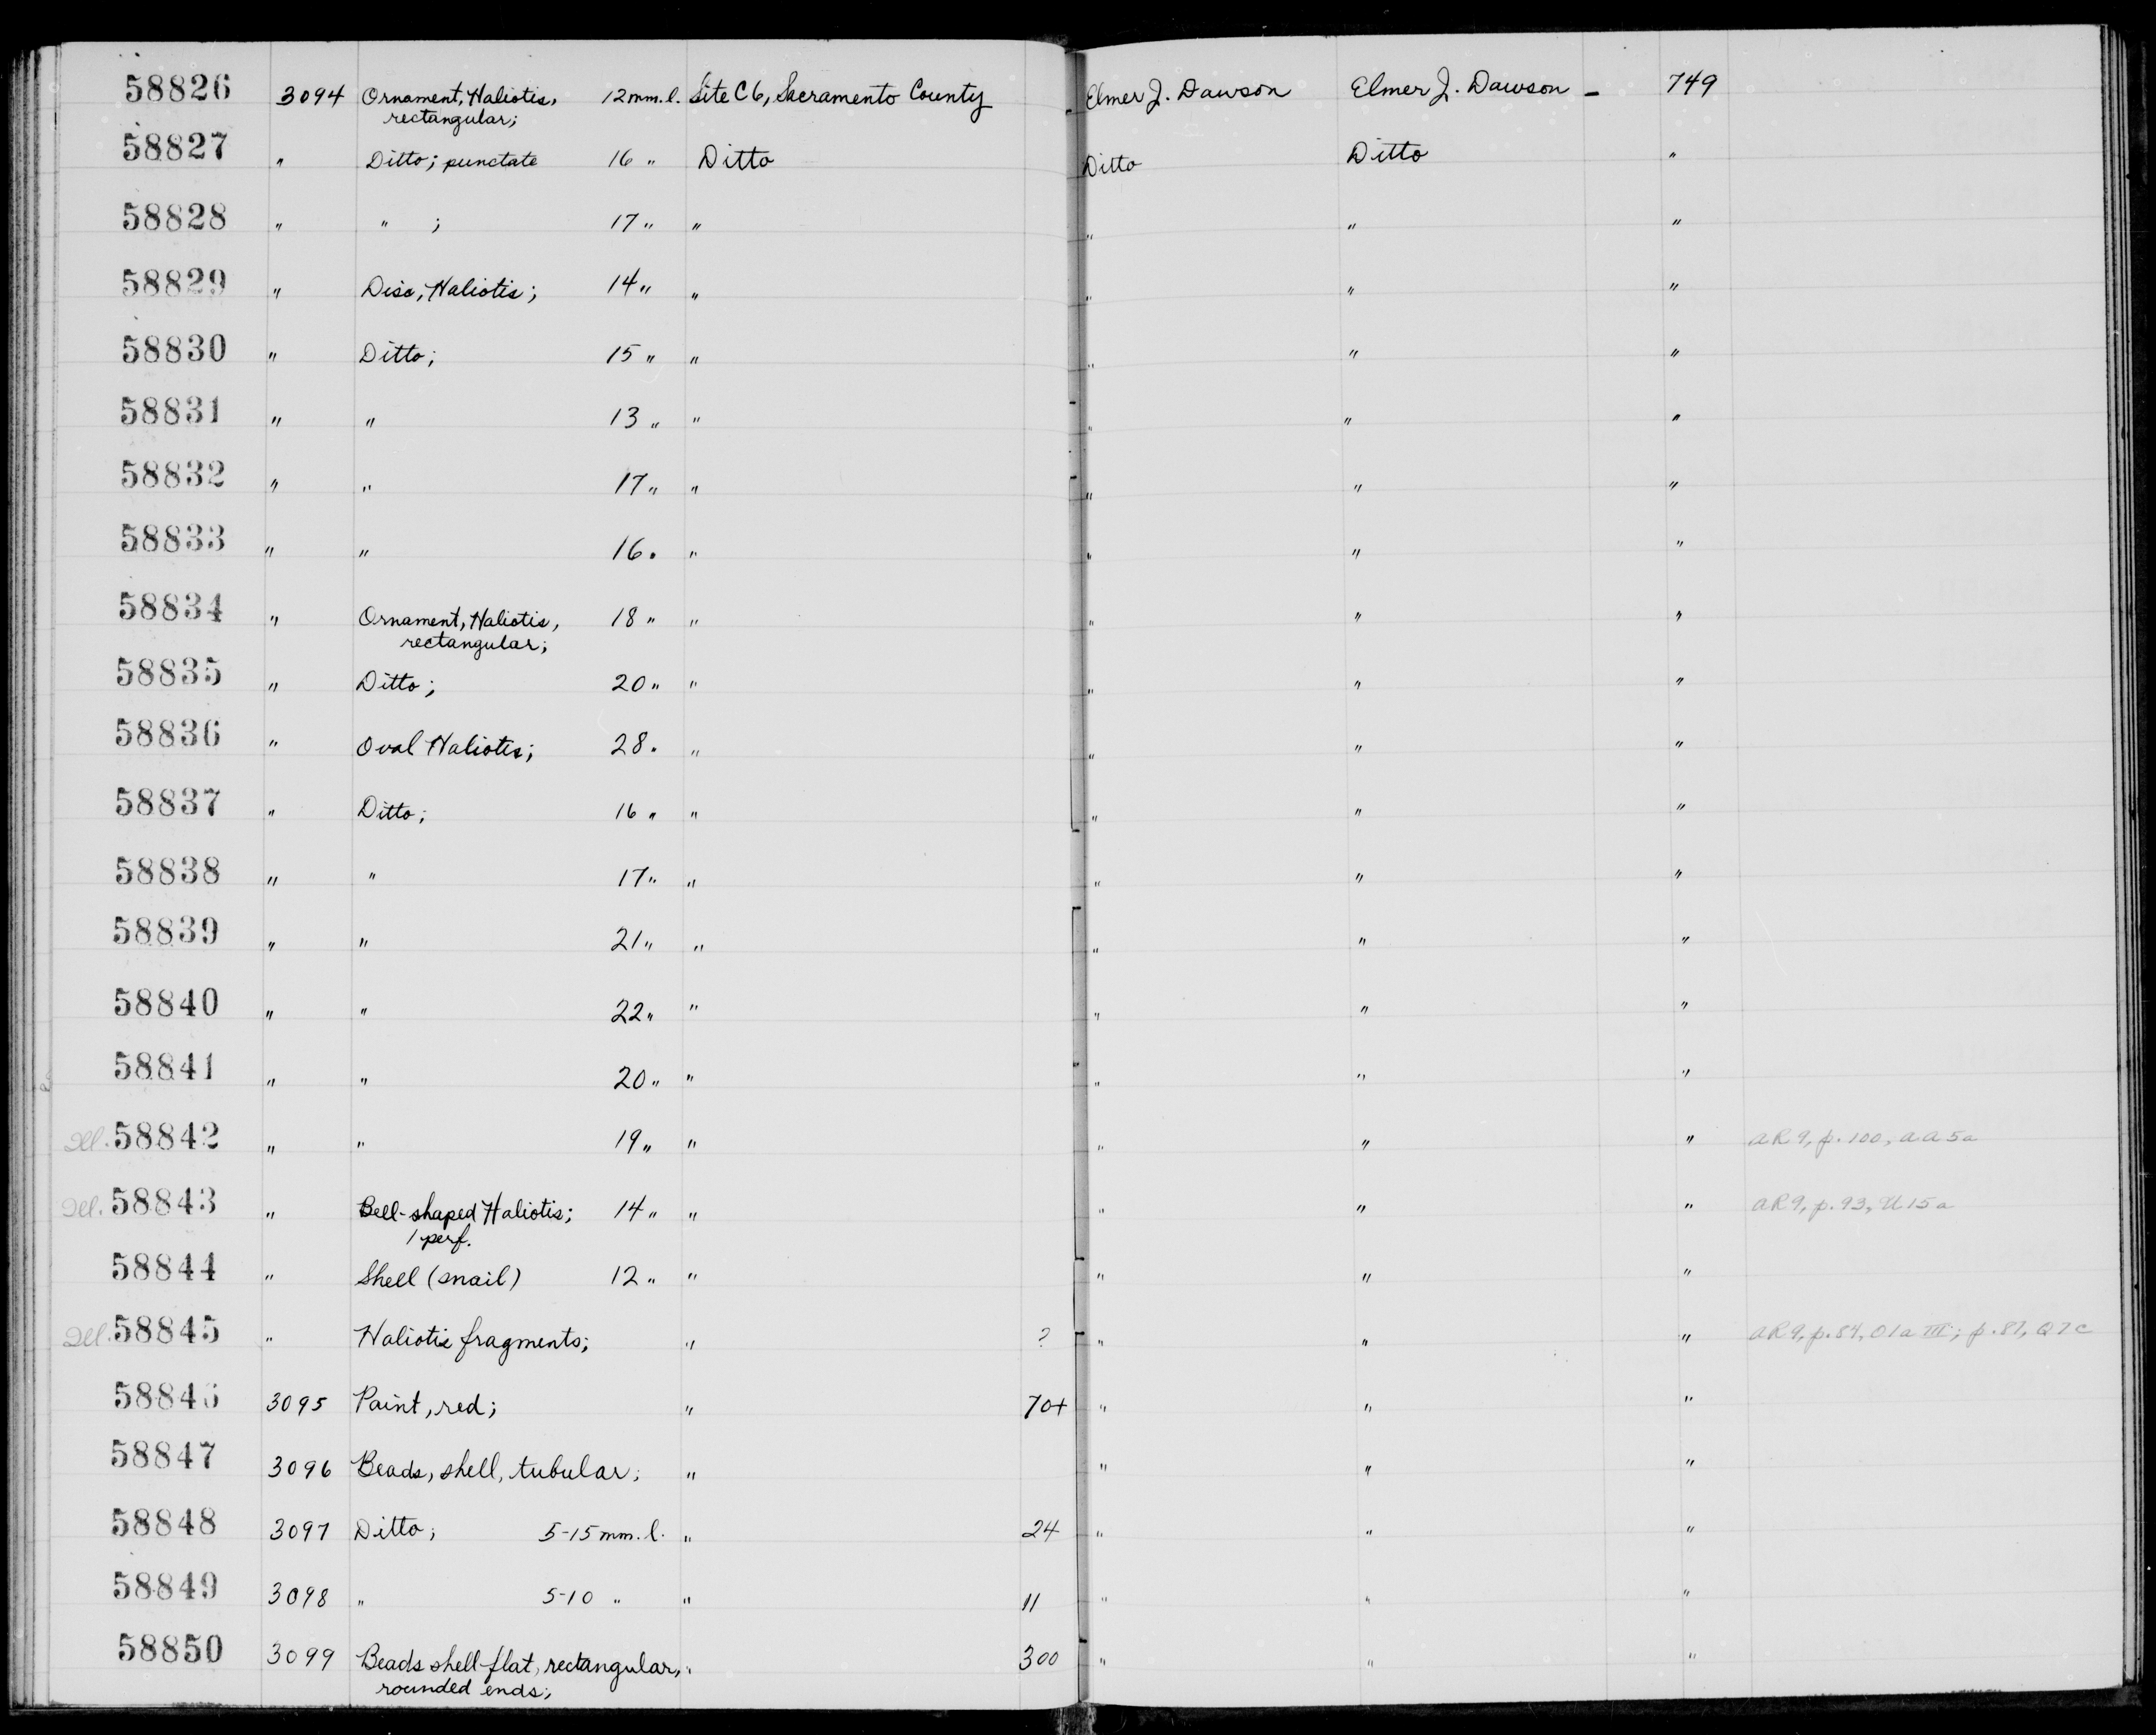 58826 3094 Ornament, Haliotis, 12 mm. l. Site C6, Sacramento County Elmer J. Dawson Elmer J. Dawson - 749
rectangular;
58827 " Ditto; punctate 16 " Ditto Ditto Ditto "
58828 " " ; 17 " " " " "
58829 " Disc, Haliotis; 14 " " " " "
58830 " Ditto; 15 " " " " "
58831 " " 13 " " " " "
58832 " " 17 " " " " "
58833 " " 16 " " " " "
58834 " Ornament, Haliotis, 18 " " " " "
rectangular;
58835 " Ditto; 20 " " " " "
58836 " Oval Haliotis; 28 " " " " "
58837 " Ditto; 16 " " " " "
58838 " " 17 " " " " "
58839 " " 21 " " " " "
58840 " " 22 " " " " "
58841 " " 20 " " " " "
Ill. 58842 " " 19 " " " " " AR9, p. 100, AA5a
Ill. 58843 " Bell-shaped Haliotis; 14 " " " " " AR9, p. 93, U15a
1 perf.
58844 " Shell (snail) 12 " " " " "
Ill. 58845 " Haliotis fragments; " ? " " " AR9, p. 84, O1a III; p. 87, Q7c
58846 3095 Paint, red; " 70+ " " "
58847 3096 Beads, shell, tubular; " " " "
58848 3097 Ditto; 5-15 mm. l. " 24 " " "
58849 3098 " 5-10 " " 11 " " "
58850 3099 Beads shell flat, rectangular, " 300 " " "
rounded ends;